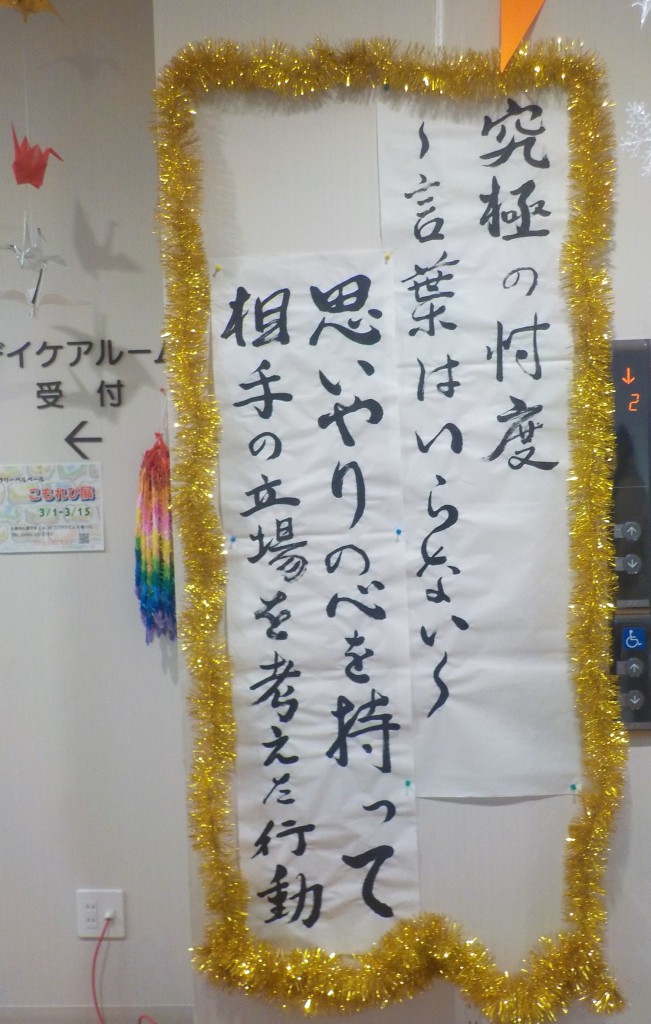 究極の忖度
~言葉はいらない~
思いやりの心を持って
相手の立場を考えた行動
デイケアルーム
受付
←
こもれび展
3/1-3/15
↓
2